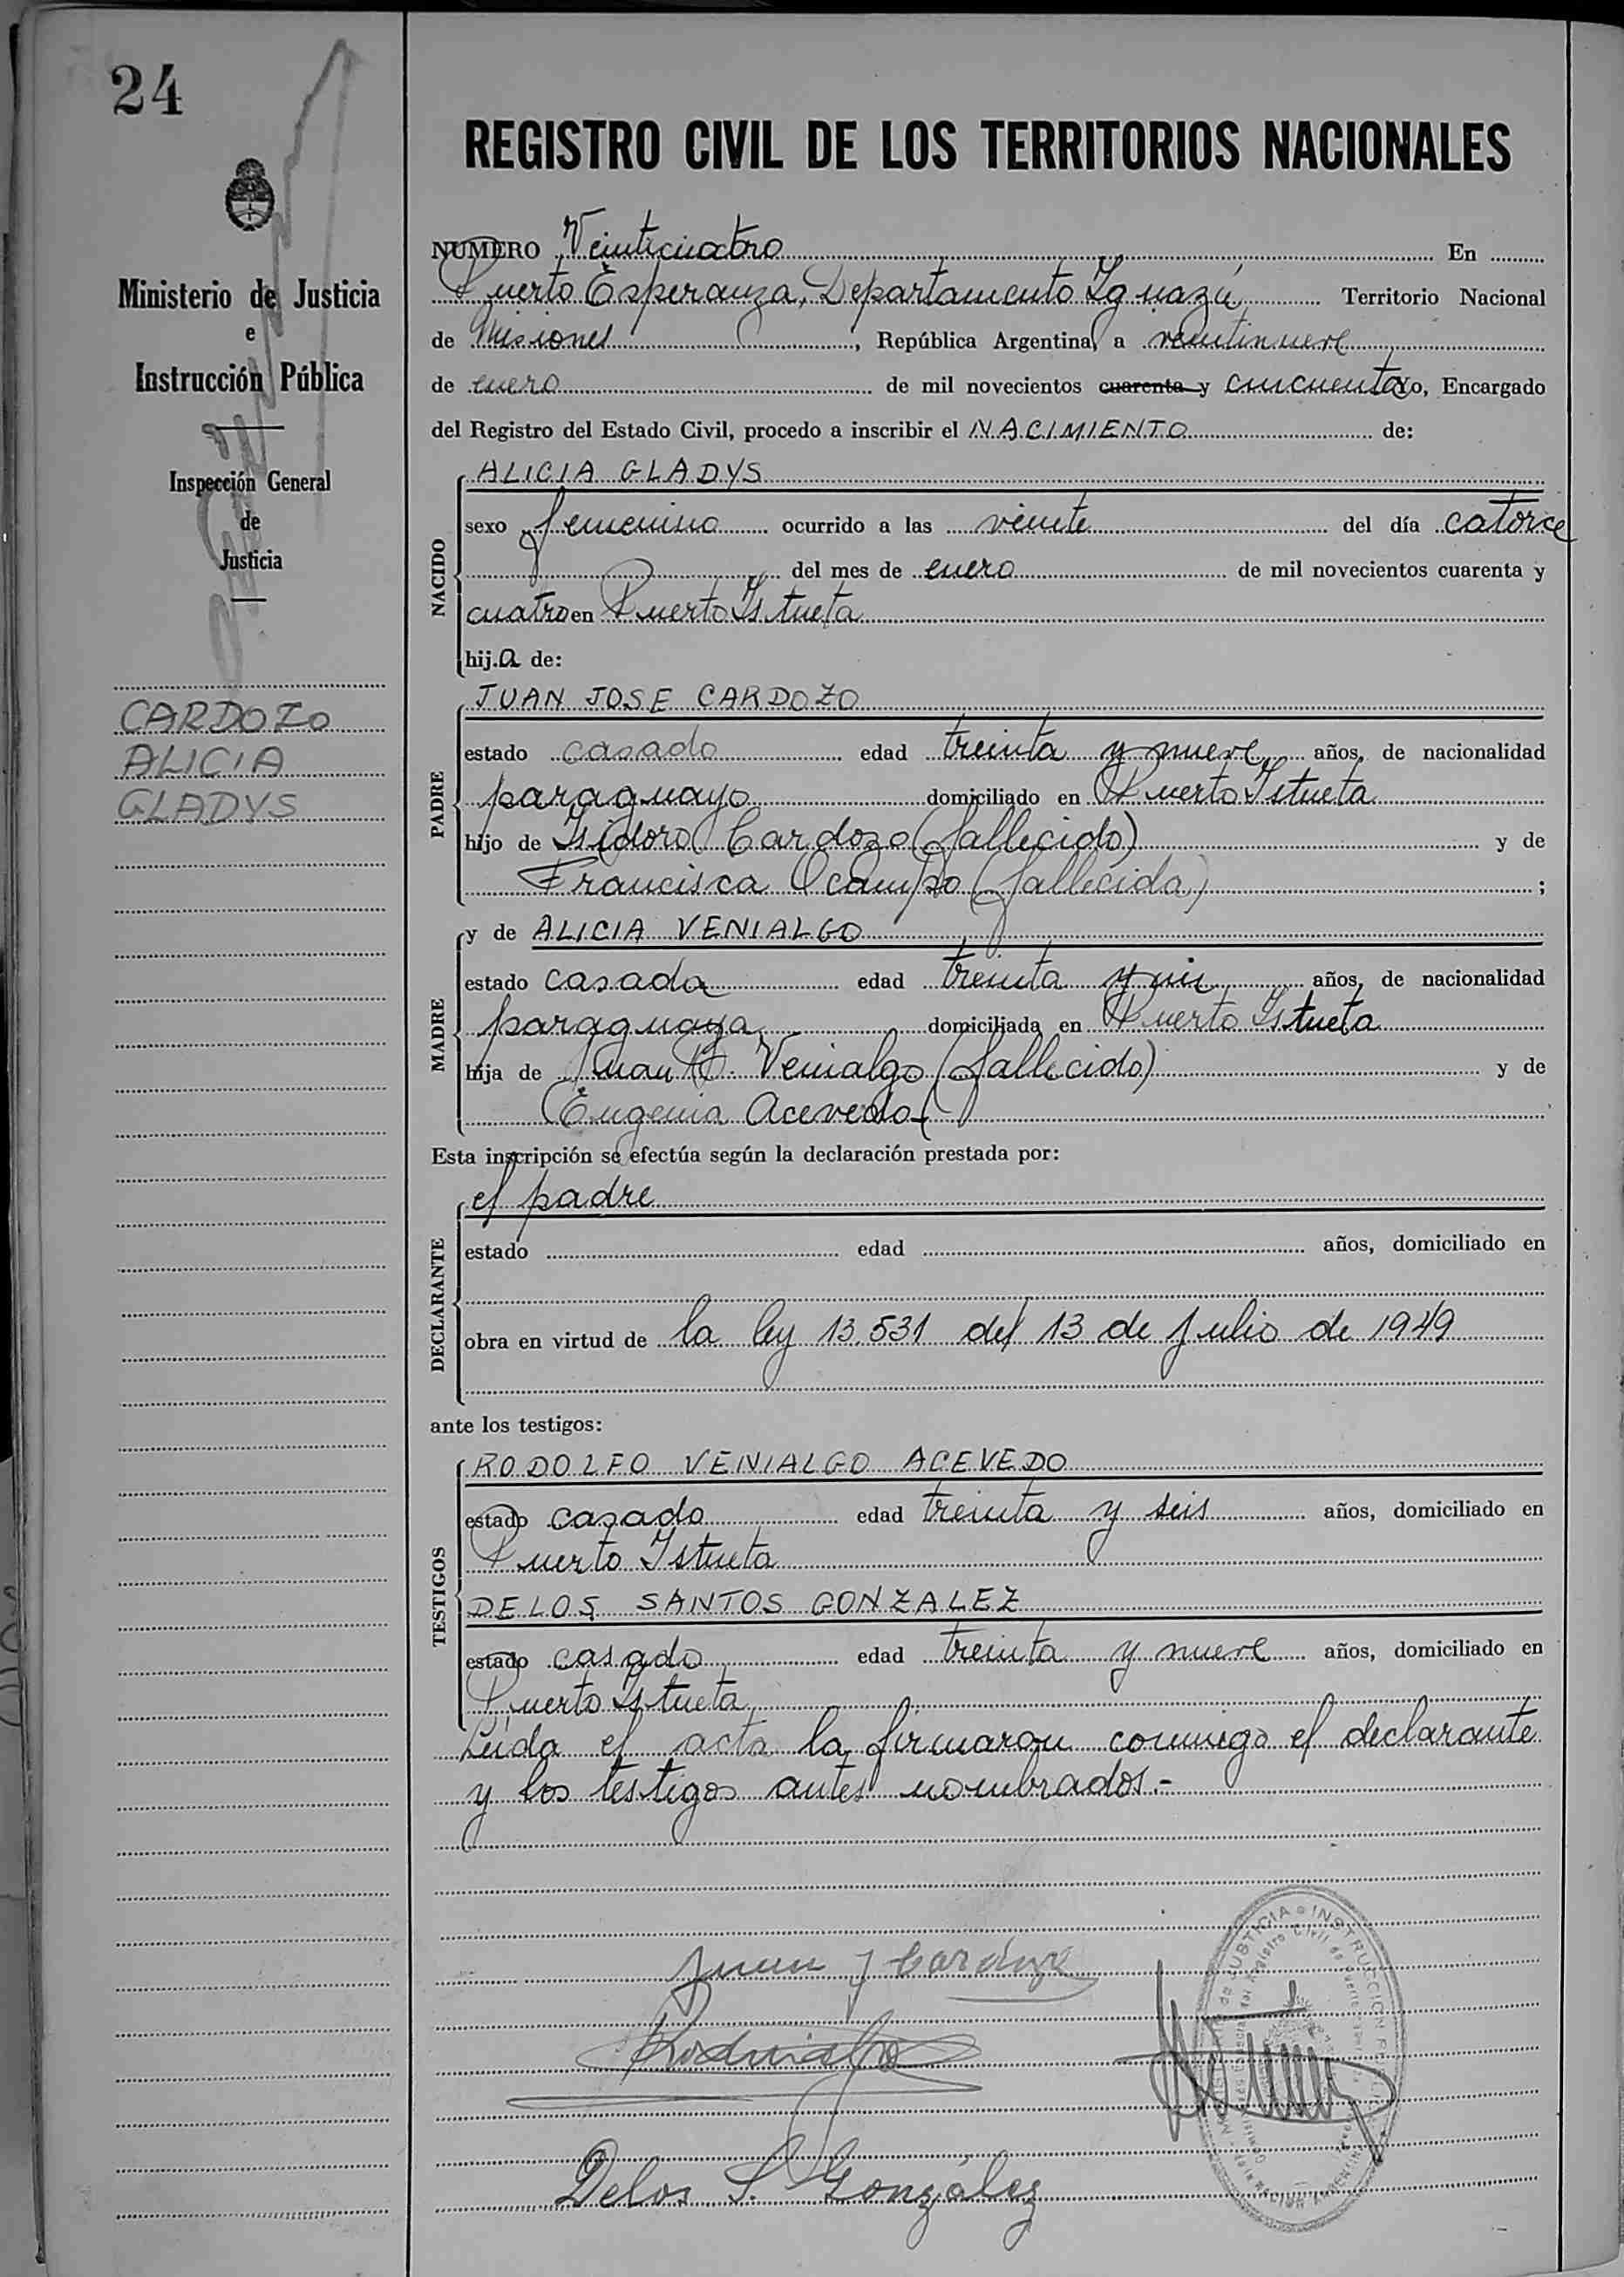 24
REGISTRO CIVIL DE LOS TERRITORIOS NACIONALES
Ministerio de Justicia
e
Instrucción Pública
Inspección General
de
Justicia
CARDOZO
ALICIA
GLADYS
NUMERO Veinticuatro En
Puerto Esperanza, Departamento Iguazú Territorio Nacional
de Misiones, República Argentina, a veintinueve
de enero de mil novecientos cuarenta y cincuenta yo, Encargado
del Registro del Estado Civil, procedo a inscribir el NACIMIENTO de:
NACIDO
ALICIA GLADYS
sexo femenino ocurrido a las veinte del día catorce
del mes de enero de mil novecientos cuarenta y
cuatro en Puerto Istueta
hija de:
PADRE
JUAN JOSE CARDOZO
estado casado edad treinta y nueve años, de nacionalidad
paraguayo domiciliado en Puerto Istueta
hijo de Isidoro Cardozo (fallecido) y de
Francisca Ocampo (fallecida) ;
MADRE
y de ALICIA VENIALGO
estado casada edad treinta y un años, de nacionalidad
paraguaya domiciliada en Puerto Istueta
hija de Juan Venialgo (fallecido) y de
Eugenia Acevedo
Esta inscripción se efectúa según la declaración prestada por:
DECLARANTE
el padre
estado edad años, domiciliado en
obra en virtud de la ley 13.531 del 13 de julio de 1949
ante los testigos:
TESTIGOS
RODOLFO VENIALGO ACEVEDO
estado casado edad treinta y seis años, domiciliado en
Puerto Istueta
DELOS SANTOS GONZALEZ
estado casado edad treinta y nueve años, domiciliado en
Puerto Istueta
Leida el acta la firmaron conmigo el declarante
y los testigos antes nombrados.-
Juan J Cardozo
Delos S. González